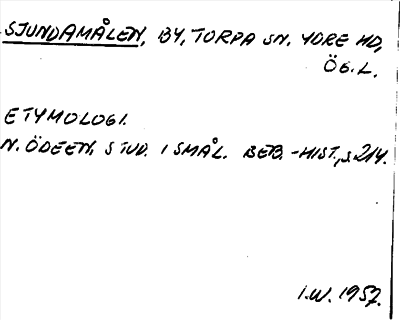 SJUNDAMÅLEN, BY, TORPA SN. YDRE HD,
ÖG.L.
ETYMOLOGI.
N. ÖDEEN, STUD. I SMÅL. BEB.-HIST., s. 214.
I.W. 1957.